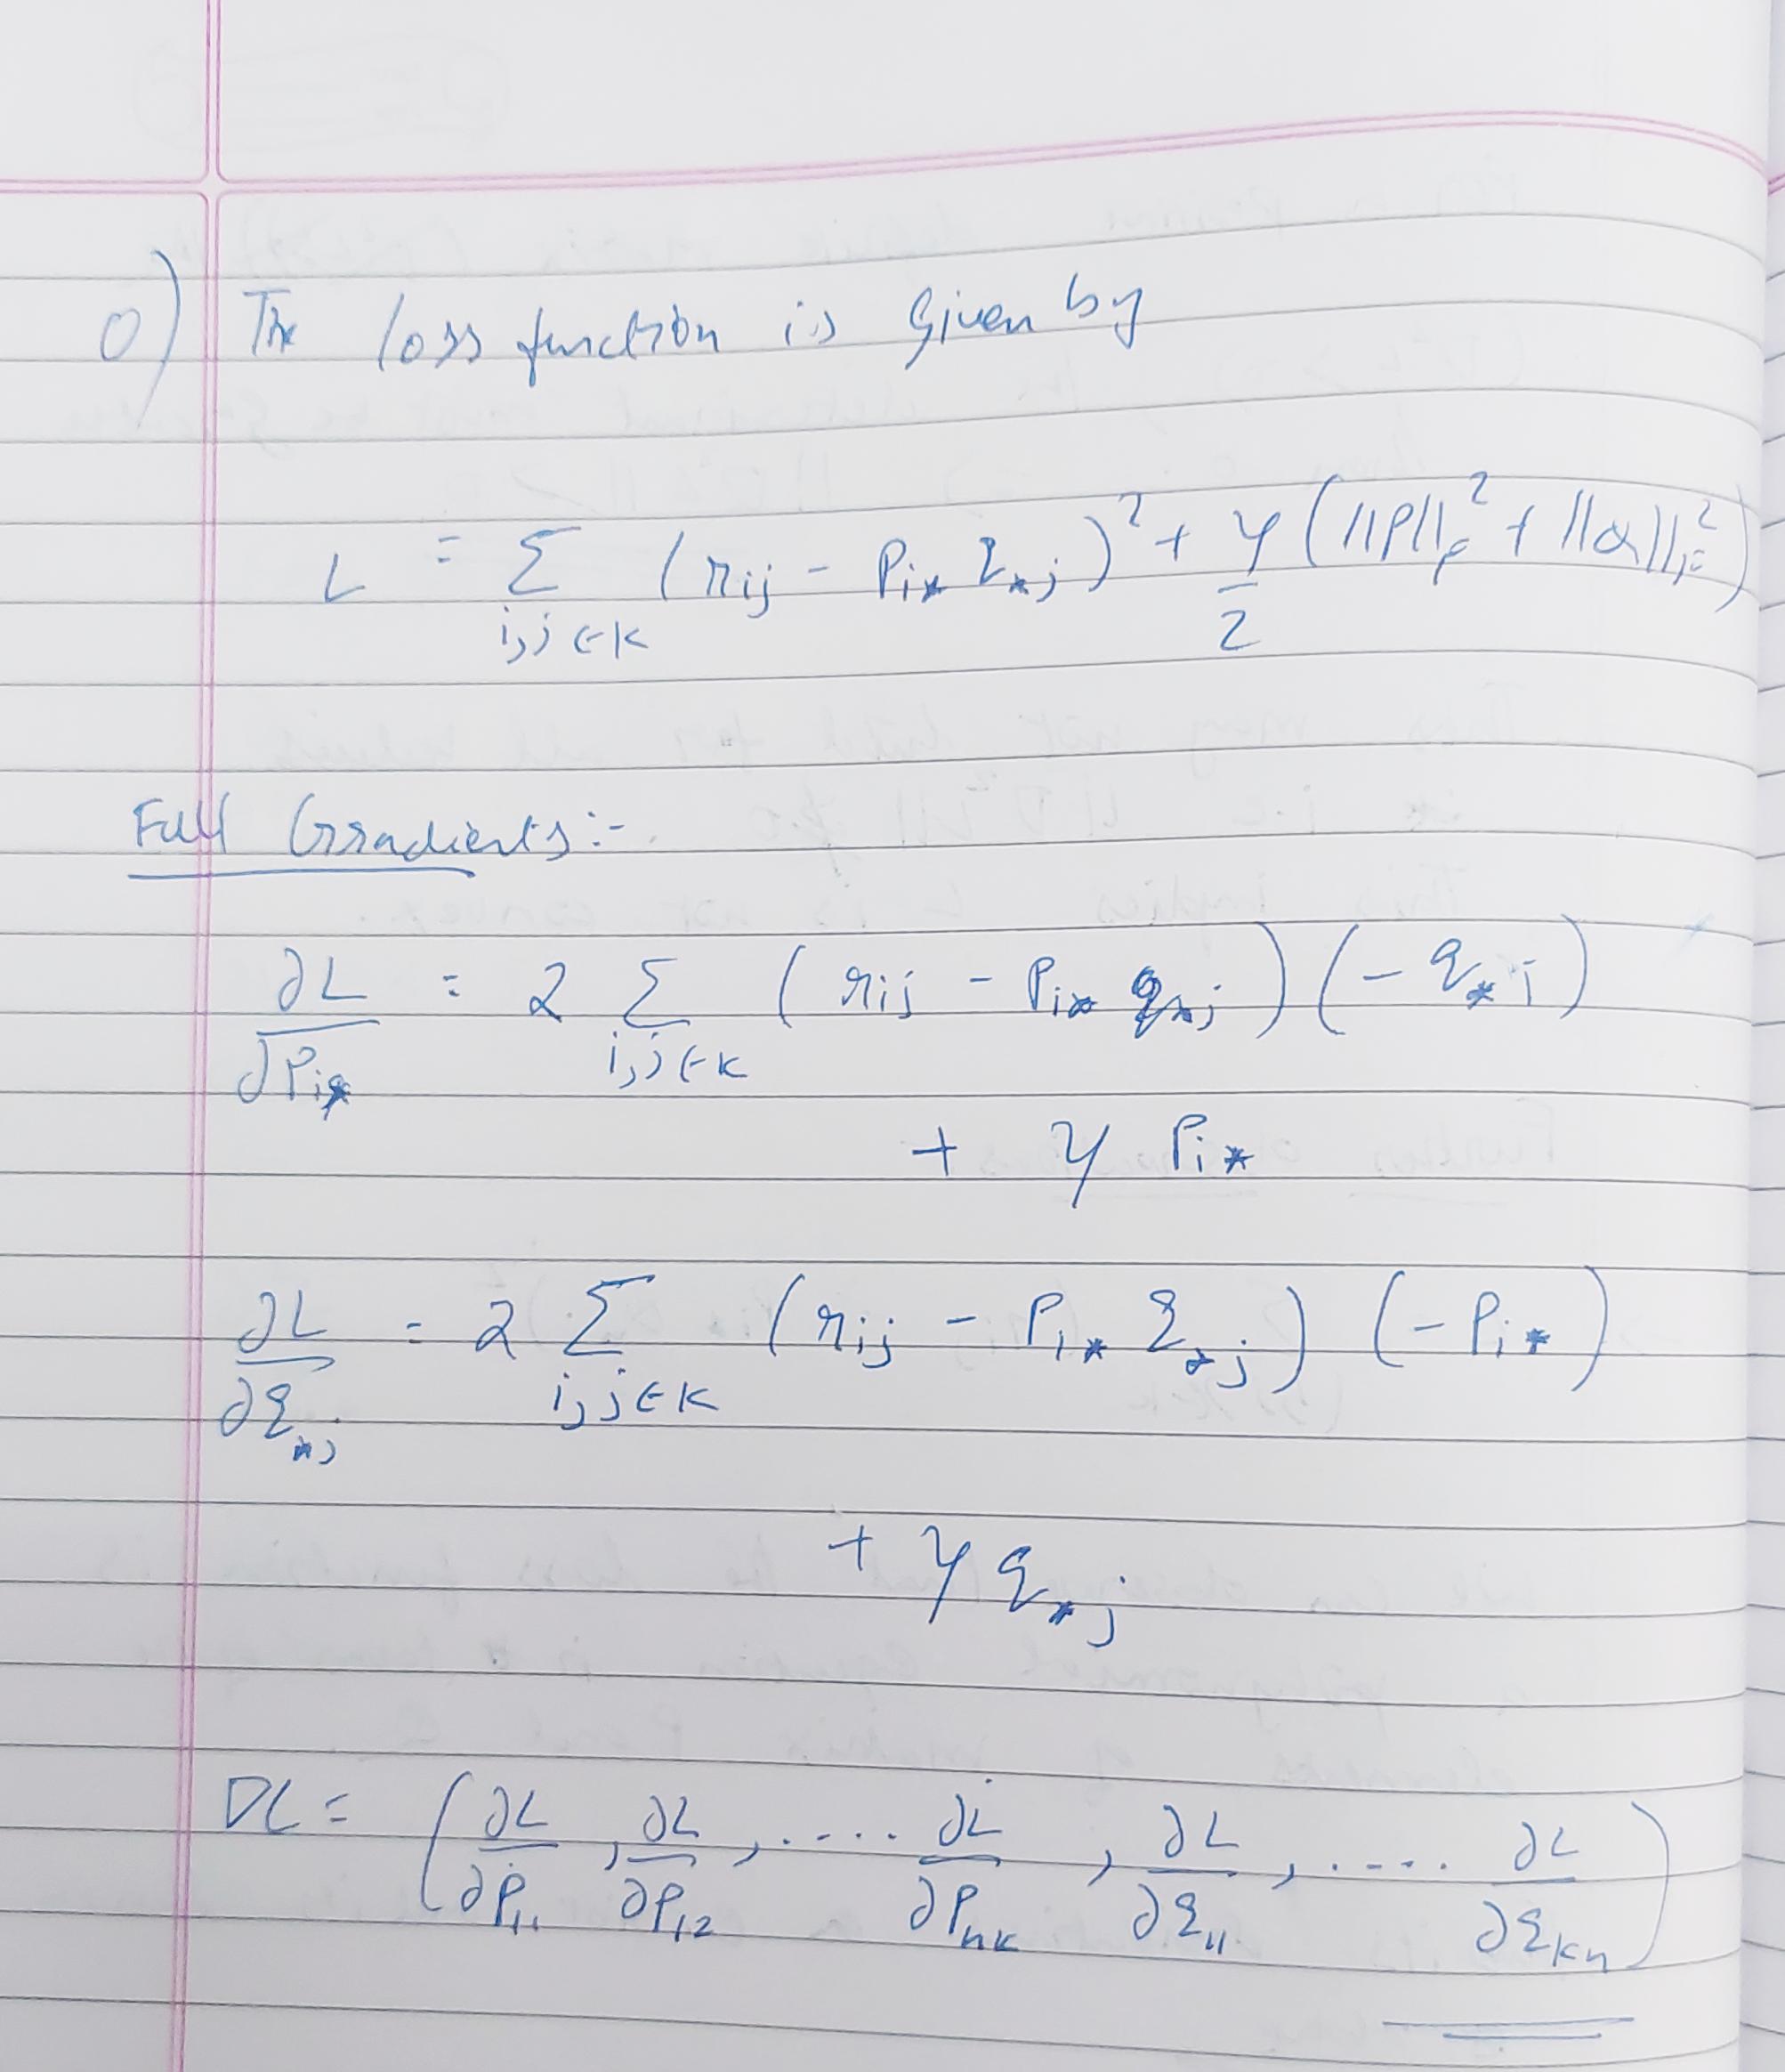 0) The loss function is given by
L = Σ_{i,j∈K} (r_{ij} - P_{i*} q_{*j})² + γ/2 (||P||_F² + ||Q||_F²)
Full Gradients:-
∂L/∂P_{i*} = 2 Σ_{i,j∈K} (r_{ij} - P_{i*} q_{*j}) (- q_{*j})
+ γ P_{i*}
∂L/∂q_{*j} = 2 Σ_{i,j∈K} (r_{ij} - P_{i*} q_{*j}) (- P_{i*})
+ γ q_{*j}
DL = (∂L/∂P_{11}, ∂L/∂P_{12}, ..... ∂L/∂P_{nk}, ∂L/∂q_{11}, ..... ∂L/∂q_{kn})